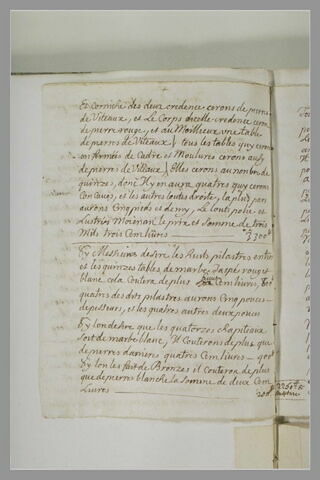 Et Corniche des deux credence cerons de pierre
de Viteaux, et Le Corps decelle credence cera
de pierre rouge, et au Meillieux une table
de pierre de Viteaux, tous les tables quy cerons
enfermées de Cadre et Moulures cerons aussy
de pierre de Viteaux, Elles cerons au nonbre de
quinzes, donc Il y en aura quatres quy cerons
Concaves, et les autres toutes droite, la plus part
aurons Cinq pieds et demy, Le tout polie et
Lustrée Moienan le prix et Somme de trois
Mils trois Cem liures — 3300ᵗᵗ
Sy Messieurs desire les huits pilastres entre
et les quinzes tables de marbe Jaspé rouge et
blanc cela Coutera de plus huit Cem liures, 800ᵗᵗ
quatres des dits pilastres aurons Cinq pouces
depesseurs, et les quatres autres deux pouces
Sy lon desire que les quatorzes chapiteaux
Soit de marbe blanc, Il Couterons de plus que
de pierre damiens quatres Cem liures — 400ᵗᵗ
Sy lon les fait de Bronzes il Couteron de plus
que de pierre blanche la Somme de deux Cem
Liures — 200ᵗᵗ